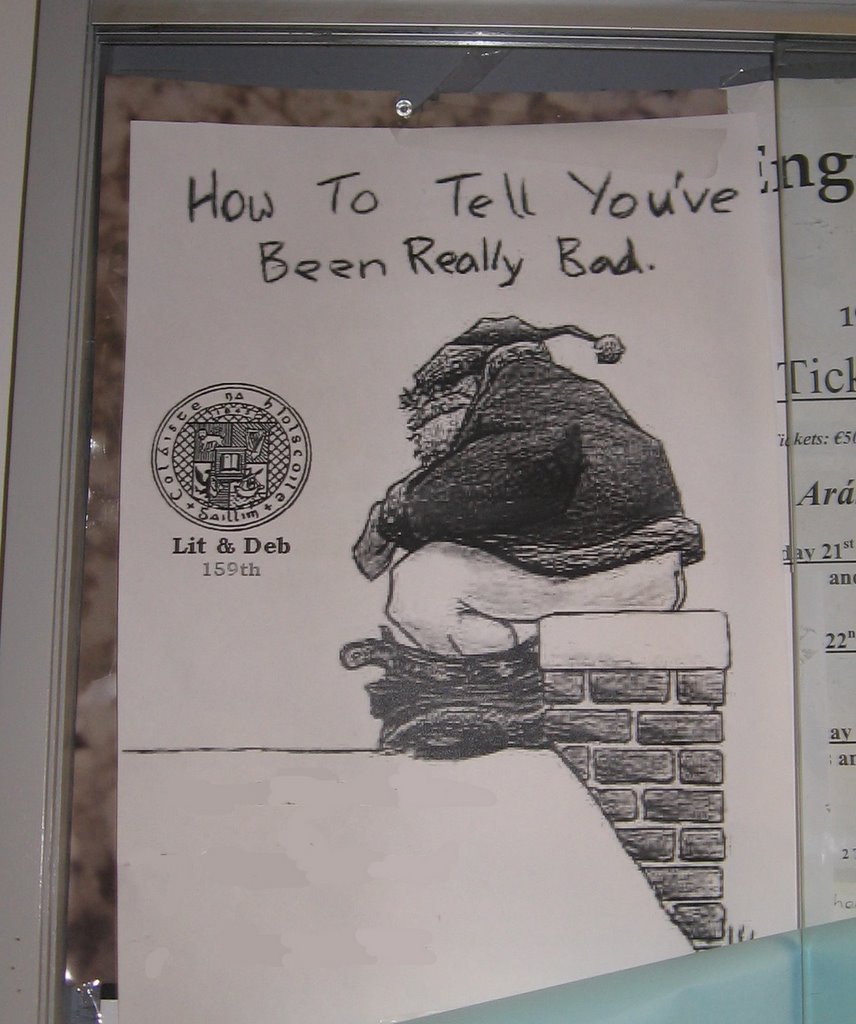 How To Tell You've
Been Really Bad.
Coláiste na hIolscoile
Gaillim
1845
Lit & Deb
159th
Eng
1
Tick
Tickets: €50
Ará
day 21st
and
22n
ay
an
27
ha